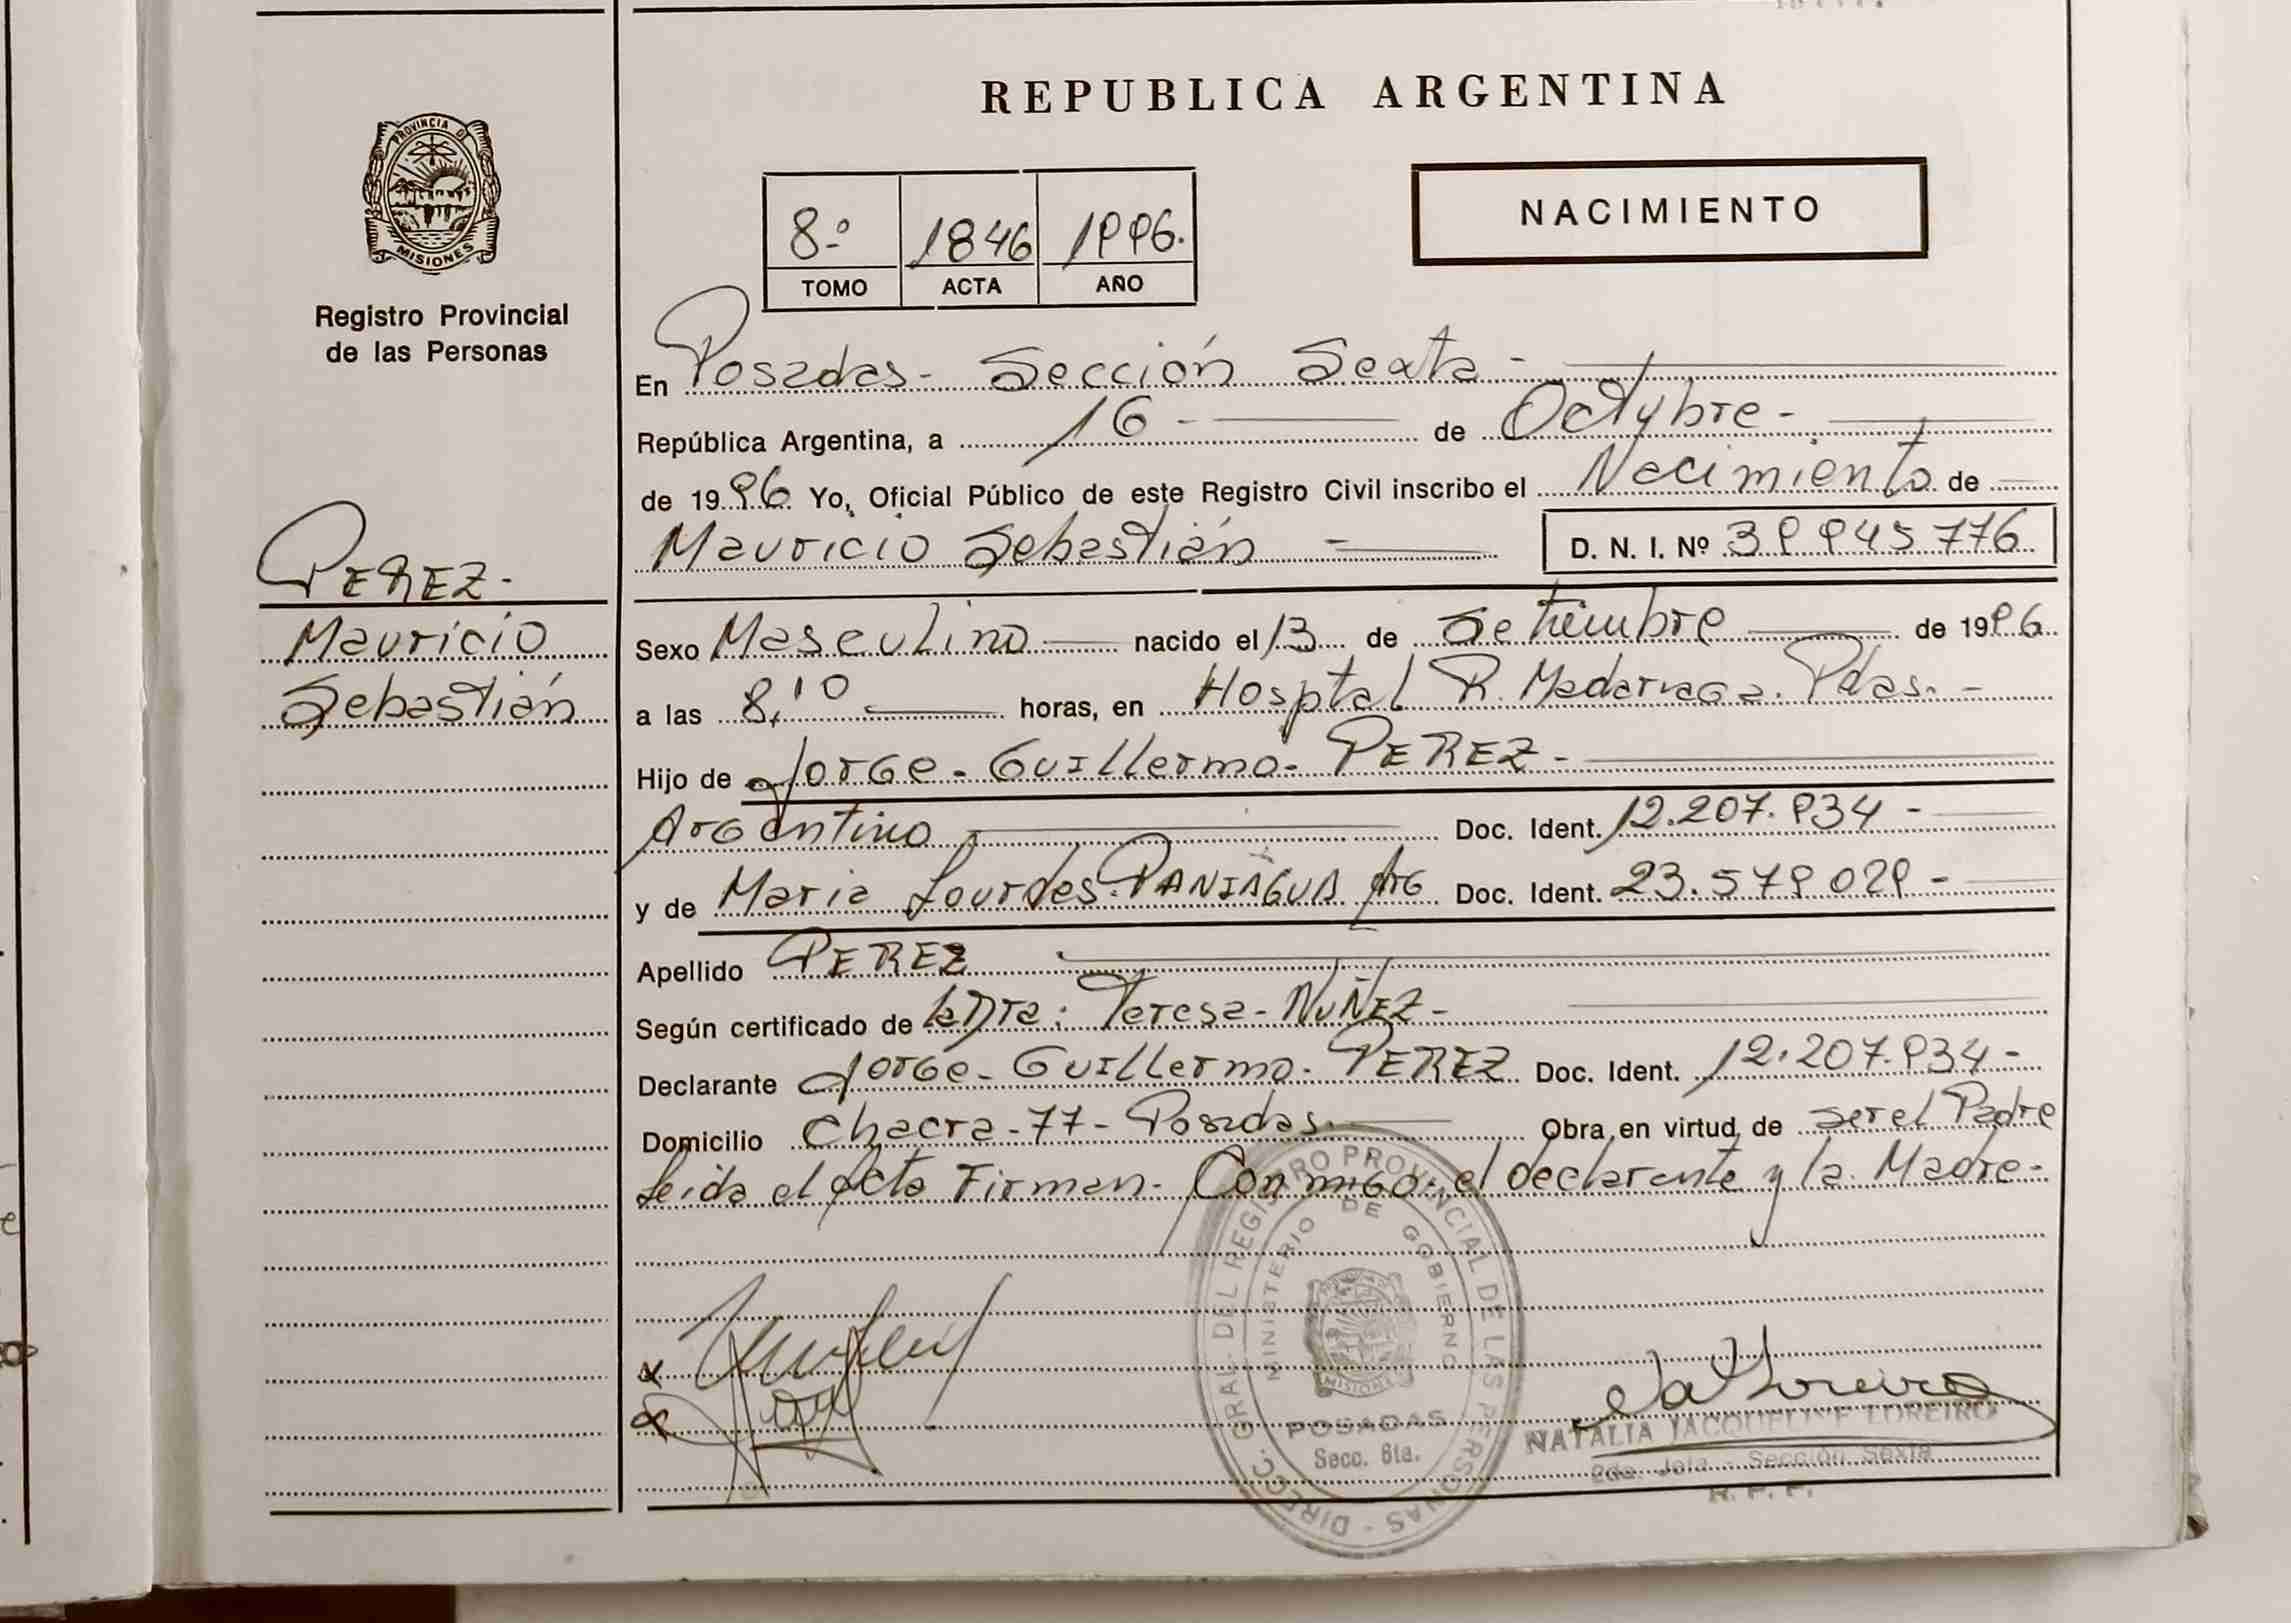 REPUBLICA ARGENTINA
PROVINCIA DE
MISIONES
Registro Provincial
de las Personas
8º
1846
1996.
TOMO
ACTA
AÑO
NACIMIENTO
En Posadas - Sección Sexta -
República Argentina, a 16 - de Octubre -
de 1996 Yo, Oficial Público de este Registro Civil inscribo el Nacimiento de
Mauricio Sebastián - D. N. I. Nº 39945776
PEREZ -
Mauricio
Sebastián
Sexo Masculino nacido el 13 de Setiembre de 1996
a las 8,10 horas, en Hosptal R. Madariaga. Pdas. -
Hijo de Jorge - Guillermo - PEREZ -
Argentino Doc. Ident. 12.207.934 -
y de Maria Lourdes PANIAGUA Arg Doc. Ident. 23.579029 -
Apellido PEREZ
Según certificado de la Dra: Teresa - NUÑEZ -
Declarante Jorge - Guillermo - PEREZ Doc. Ident. 12.207.934 -
Domicilio Chacra - 77 - Posadas. Obra en virtud de ser el Padre
Leida el Acta Firman - Conmigo - el declarante y la Madre -
DIRECC. GRAL. DEL REGISTRO PROVINCIAL DE LAS PERSONAS
MINISTERIO DE GOBIERNO
MISIONES
POSADAS
Secc. 6ta.
NATALIA JACQUELINE LOREIRO
2da. Jefa - Sección Sexta
R. P. P.